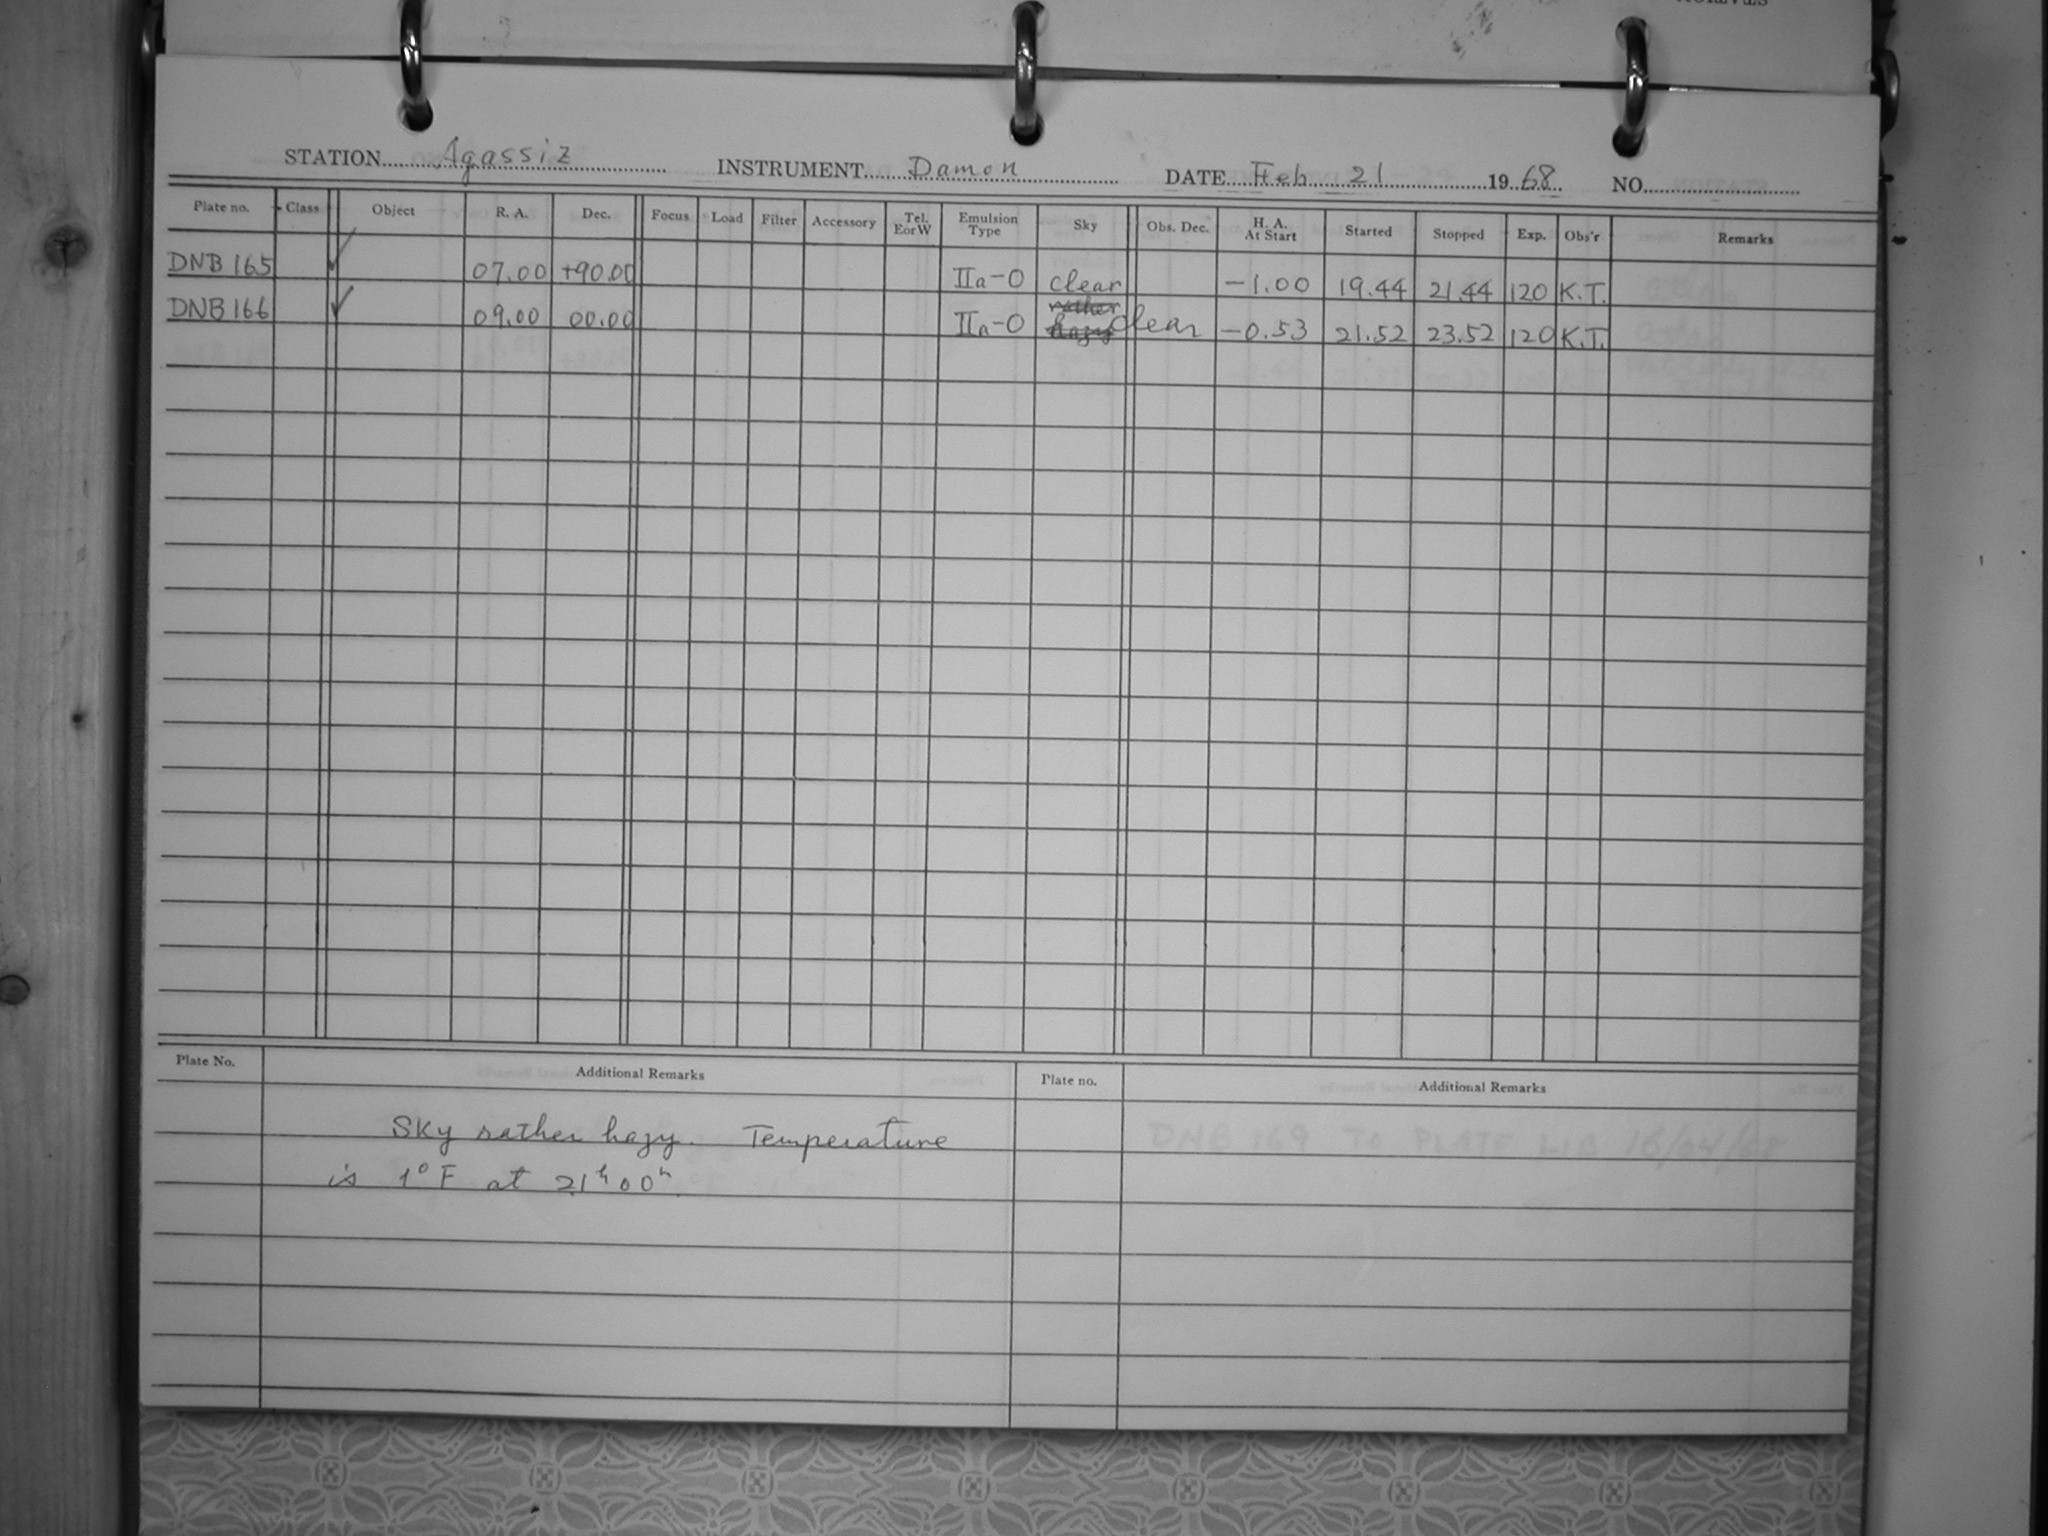 STATION Agassiz INSTRUMENT Damon DATE Feb 21 1968 NO.
Plate no. Class Object R. A. Dec. Focus Load Filter Accessory Tel. E or W Emulsion Type Sky Obs. Dec. H. A. At Start Started Stopped Exp. Obs'r Remarks
DNB 165 ✓ 07.00 +90.00 IIa-O clear -1.00 19.44 21.44 120 K.T.
DNB 166 ✓ 09.00 00.00 IIa-O rather hazy clear -0.53 21.52 23.52 120 K.T.
Plate No. Additional Remarks Plate no. Additional Remarks
Sky rather hazy. Temperature
is 1° F at 21h00m
DNB 169 TO PLATE LIB 16/04/68